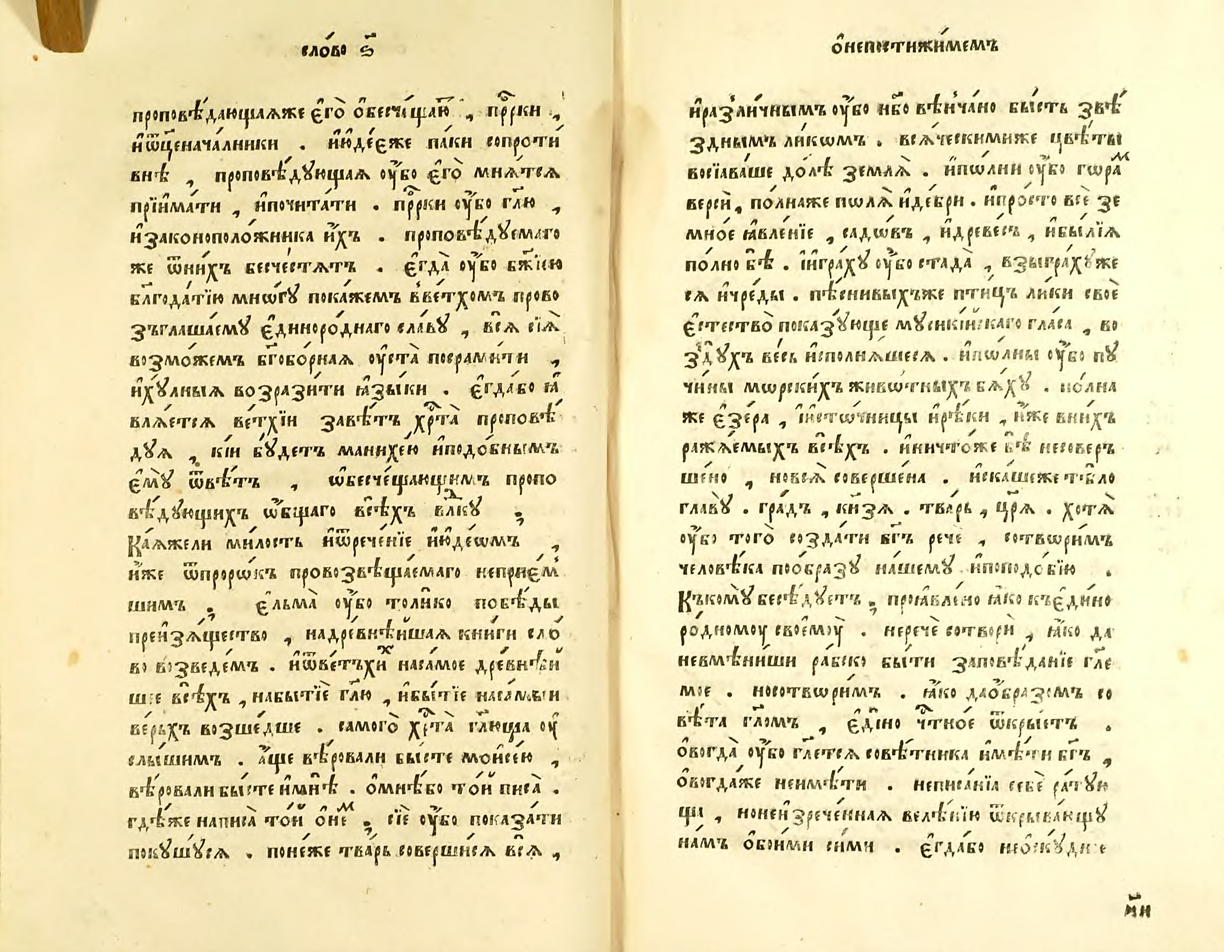 сло́во ѕ҃
проповѣ́дающаѧже є҆го̀ ѡ҆бесчища́ю , прⷪ҇рки ,
и҆ѿценача́лники . и҆і҆ꙋде́єже па́ки сопроти
внѣ , проповѣ́дꙋющаѧ ᲂу҆́бо є҆го̀ мнѧ́тсѧ
прїима́ти , и҆почита́ти . прⷪ҇рки ᲂу҆́бо гл҃ю ,
и҆законоположника и҆́хъ . проповѣ́дꙋемаго
же ѿни́хъ бесче́стѧтъ . є҆гда̀ ᲂу҆́бо бж҃їею
блгⷣода́тїю мно́гꙋ пока́жемъ вве́тхомъ прово
зъглаша́емꙋ є҆диноро́днаго сла́вꙋ , всѧ̀ сїѧ̀
возмо́жемъ бг҃обо́рнаѧ ᲂу҆ста̀ посрами́ти ,
и҆хꙋ́лныѧ возрази́ти ꙗ҆зы́ки . є҆гда́бо ꙗ҆
влѧ́етсѧ ве́тхїи завѣ́тъ хрⷭ҇та̀ проповѣ́
дꙋѧ , кі́и бꙋ́детъ манихе́ю и҆подо́бнымъ
є҆мꙋ̀ ѿвѣ́тъ , ѡ҆бесче́щающимъ пропо
вѣ́дꙋющихъ ѻ҆́бщаго всѣ́хъ влⷣкꙋ ;
Каѧ́жели ми́лость и҆ѿрече́нїе и҆і҆ꙋде́ѡмъ ,
и҆́же ѿпроро́къ провозвѣща́емаго неприє́м
шимъ ; є҆льма̀ ᲂу҆́бо толи́ко побѣ́ды
преизѧ́щество , надревнѣ́йшаѧ кни́ги сло́
во возведе́мъ . и҆ѿве́тхих̾ наса́мое древнѣ́й
шее всѣ́хъ , набытїѐ гл҃ю , и҆бытїѐ наса́мыи
ве́рьхъ возше́дше . самого̀ хрⷭ҇та̀ гл҃юща ᲂу҆
слы́шимъ . а҆́ще вѣ́ровали бы́сте мѡисе́ю ,
вѣ́ровали бы́сте и҆мнѣ̀ . ѡ҆мнѣ́бо то́й писа̀ .
гдѣ́же написа̀ то́й ѡ҆не́мъ ; сїѐ ᲂу҆́бо показа́ти
покꙋшꙋ́сѧ . поне́же тва́рь соверши́сѧ всѧ̀ ,
ѡ҆непостижи́мемъ
и҆разли́чнымъ ᲂу҆́бо не́бо вѣ́нчано бы́сть звѣ́
зднымъ ли́комъ . всѧ́ческимиже цвѣ́ты
восїѧва́ше до́лѣ землѧ̀ . и҆по́лни ᲂу҆́бо гора́м
версѝ , по́лнаже полѧ̀ и҆де́бри . и҆про́сто всѐ зе
мно́е ꙗ҆вле́нїе , садо́въ , и҆древе́съ , и҆бы́лїѧ
по́лно бѣ̀ . и҆игра́хꙋ ᲂу҆́бо стада̀ , взыгра́хꙋже
сѧ и҆чре́ды . пѣсни́выхъже пти́цъ ли́ки своѐ
є҆стество̀ показꙋ́юще мꙋсикі́йскаго гла́са , во
здꙋ́хъ ве́сь и҆сполнѧ́шесѧ . и҆по́лны ᲂу҆́бо пꙋ
чи́ны морски́хъ живо́тныхъ бѧ́хꙋ . по́лна
же є҆зе́ра , и҆исто́чницы и҆рѣ́ки , и҆́же вни́хъ
ражѧ́емыхъ всѣ́хъ . и҆ничто́же бѣ̀ несовер
ше́но , новсѧ̀ соверше́на . и҆ска́шеже тѣ́ло
главꙋ̀ . гра́дъ , кнѧ́зѧ . тва́рь , цр҃ѧ̀ . хотѧ̀
ᲂу҆́бо того̀ созда́ти бг҃ъ речѐ , сотвори́мъ
человѣ́ка поо́бразꙋ на́шемꙋ и҆поподо́бїю .
Къкомꙋ̀ бесѣ́дꙋетъ ; проѧвле́но ꙗ҆́ко къє҆дино
ро́дномоу своемоу̀ . неречѐ сотворѝ , ꙗ҆́ко да
невмѣни́ши ра́бско бы́ти заповѣ́данїе гле
мое . носотвори́мъ . ꙗ҆́ко даѻ҆́бразомъ со
вѣ́та гл҃омъ , є҆ди́но чⷭ҇тное ѿкры́етъ .
ѻ҆вогда̀ ᲂу҆́бо гл҃етсѧ совѣ́тника и҆мѣ́ти бг҃ъ ,
ѻ҆вогда́же неимѣ́ти . неписа́нїа себѐ ра́тꙋю
ща , нонеизрече́ннаѧ велѣ́нїю ѿкрыва́ющꙋ
на́мъ ѻ҆бои́ми си́ми . є҆гда́бо неѡскꙋ́дне
м҃и